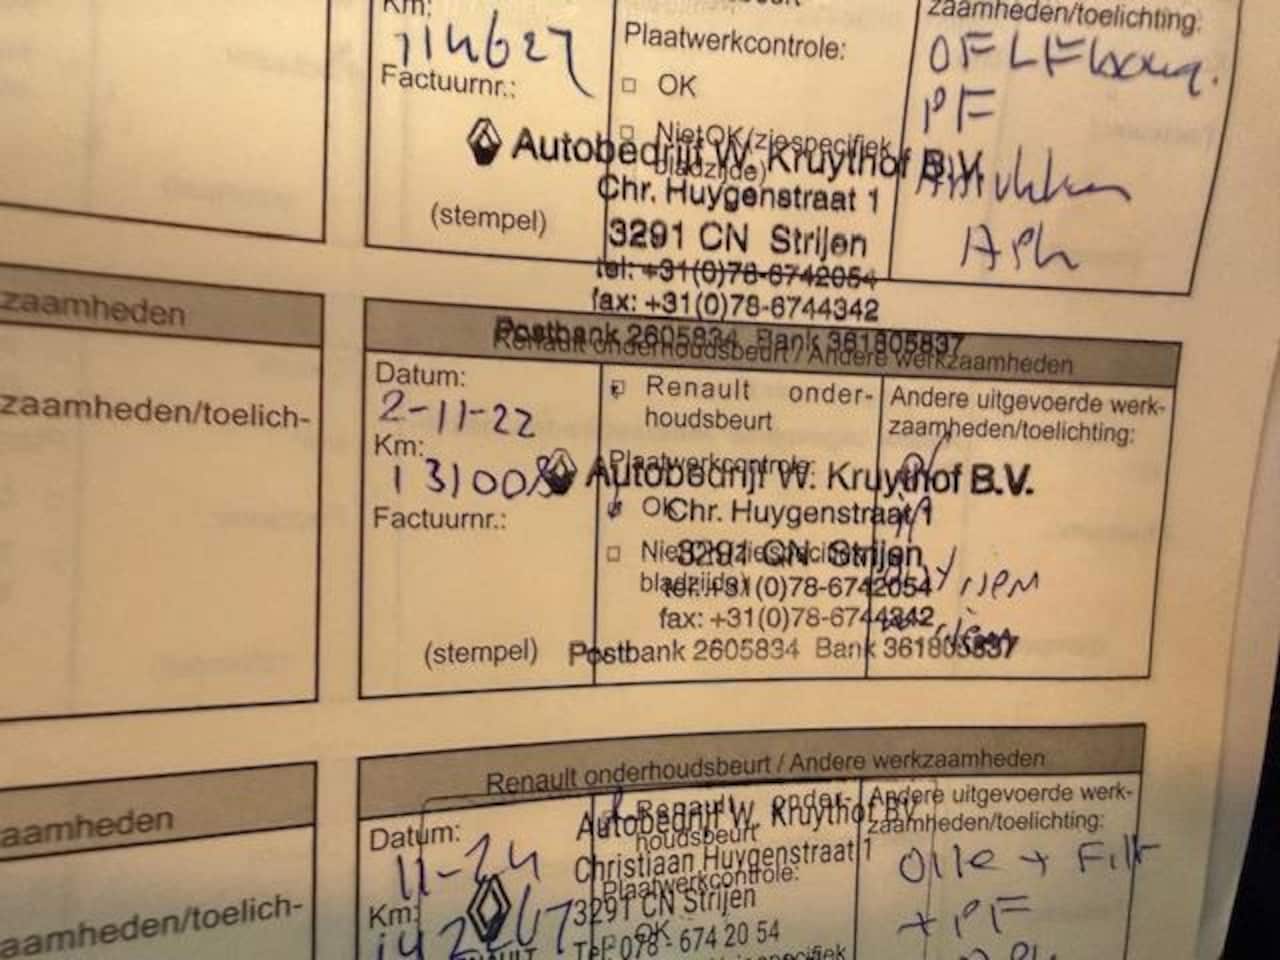 Km:
114627
Factuurnr.:
(stempel)
Plaatwerkcontrole:
□ OK
□ Niet OK (zie specifiek
bladzijde)
zaamheden/toelichting:
OF LF
PF
APK
Autobedrijf W. Kruythof B.V.
Chr. Huygenstraat 1
3291 CN Strijen
tel: +31(0)78-6742054
fax: +31(0)78-6744342
Postbank 2605834 Bank 361805837
zaamheden
zaamheden/toelich-
Renault onderhoudsbeurt / Andere werkzaamheden
Datum:
2-11-22
Km:
131008
Factuurnr.:
(stempel)
Renault onder-
houdsbeurt
Plaatwerkcontrole:
OK
□ Niet OK (zie specifiek
bladzijde)
Andere uitgevoerde werk-
zaamheden/toelichting:
riem
Autobedrijf W. Kruythof B.V.
Chr. Huygenstraat 1
3291 CN Strijen
tel: +31(0)78-6742054
fax: +31(0)78-6744342
Postbank 2605834 Bank 361805837
aamheden
aamheden/toelich-
Renault onderhoudsbeurt / Andere werkzaamheden
Datum:
11-24
Km:
142267
Renault onder-
houdsbeurt
Plaatwerkcontrole:
OK
specifiek
Andere uitgevoerde werk-
zaamheden/toelichting:
Olie + Filt
+ PF
Autobedrijf W. Kruythof BV
Christiaan Huygenstraat 1
3291 CN Strijen
Tel: 078 - 674 20 54
RENAULT